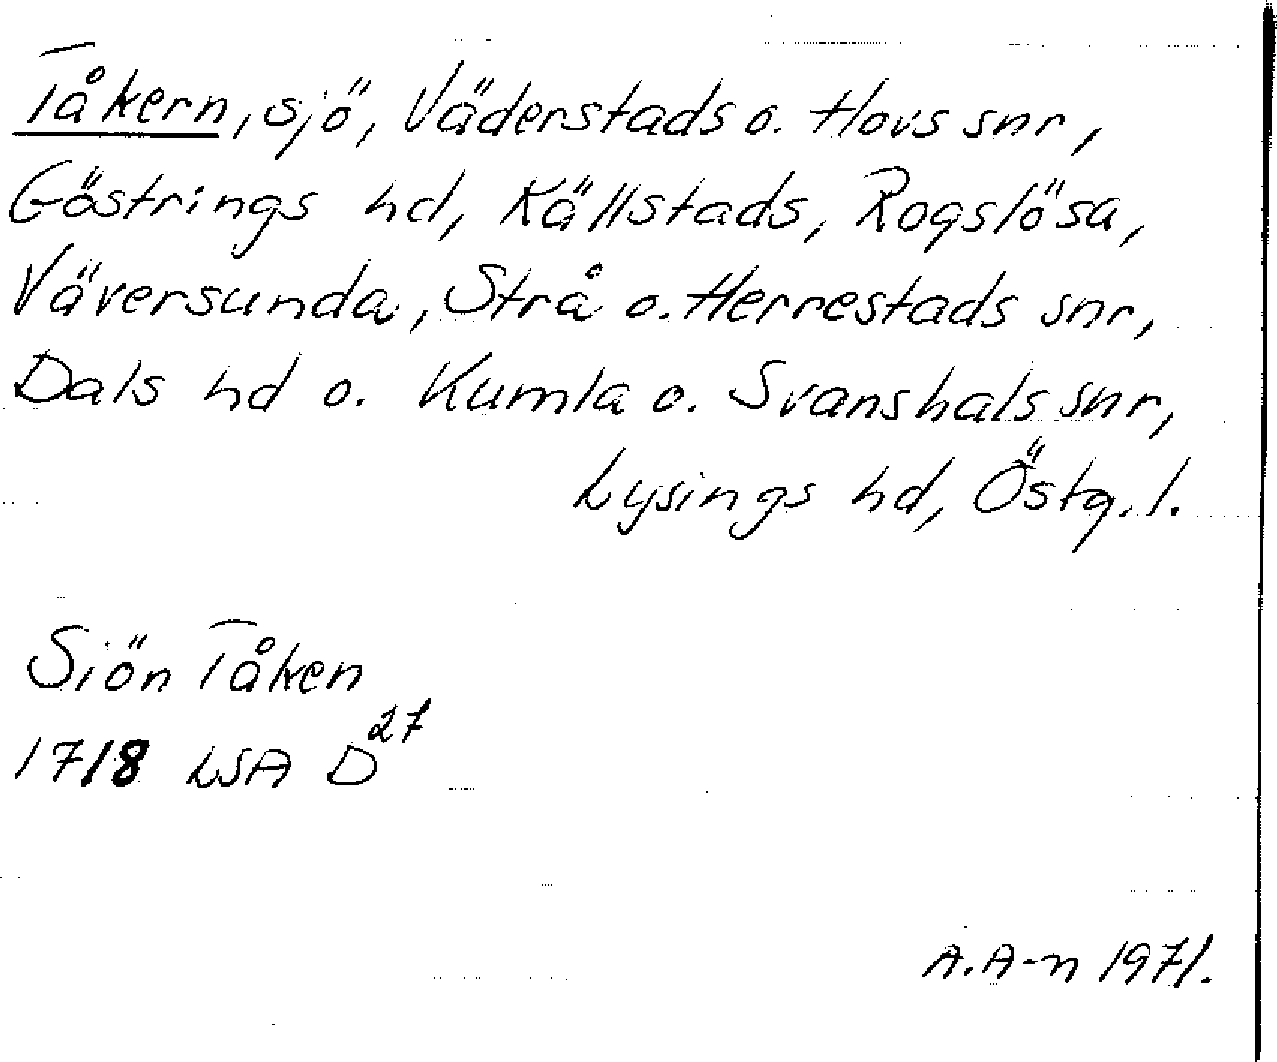 Tåkern, sjö, Väderstads o. Hovs snr,
Göstrings hd, Källstads, Rogslösa,
Väversunda, Strå o. Herrestads snr,
Dals hd o. Kumla o. Svanshals snr,
Lysings hd, Östg. l.
Siön Tåken
1718 LSA D27
A. A-n 1971.